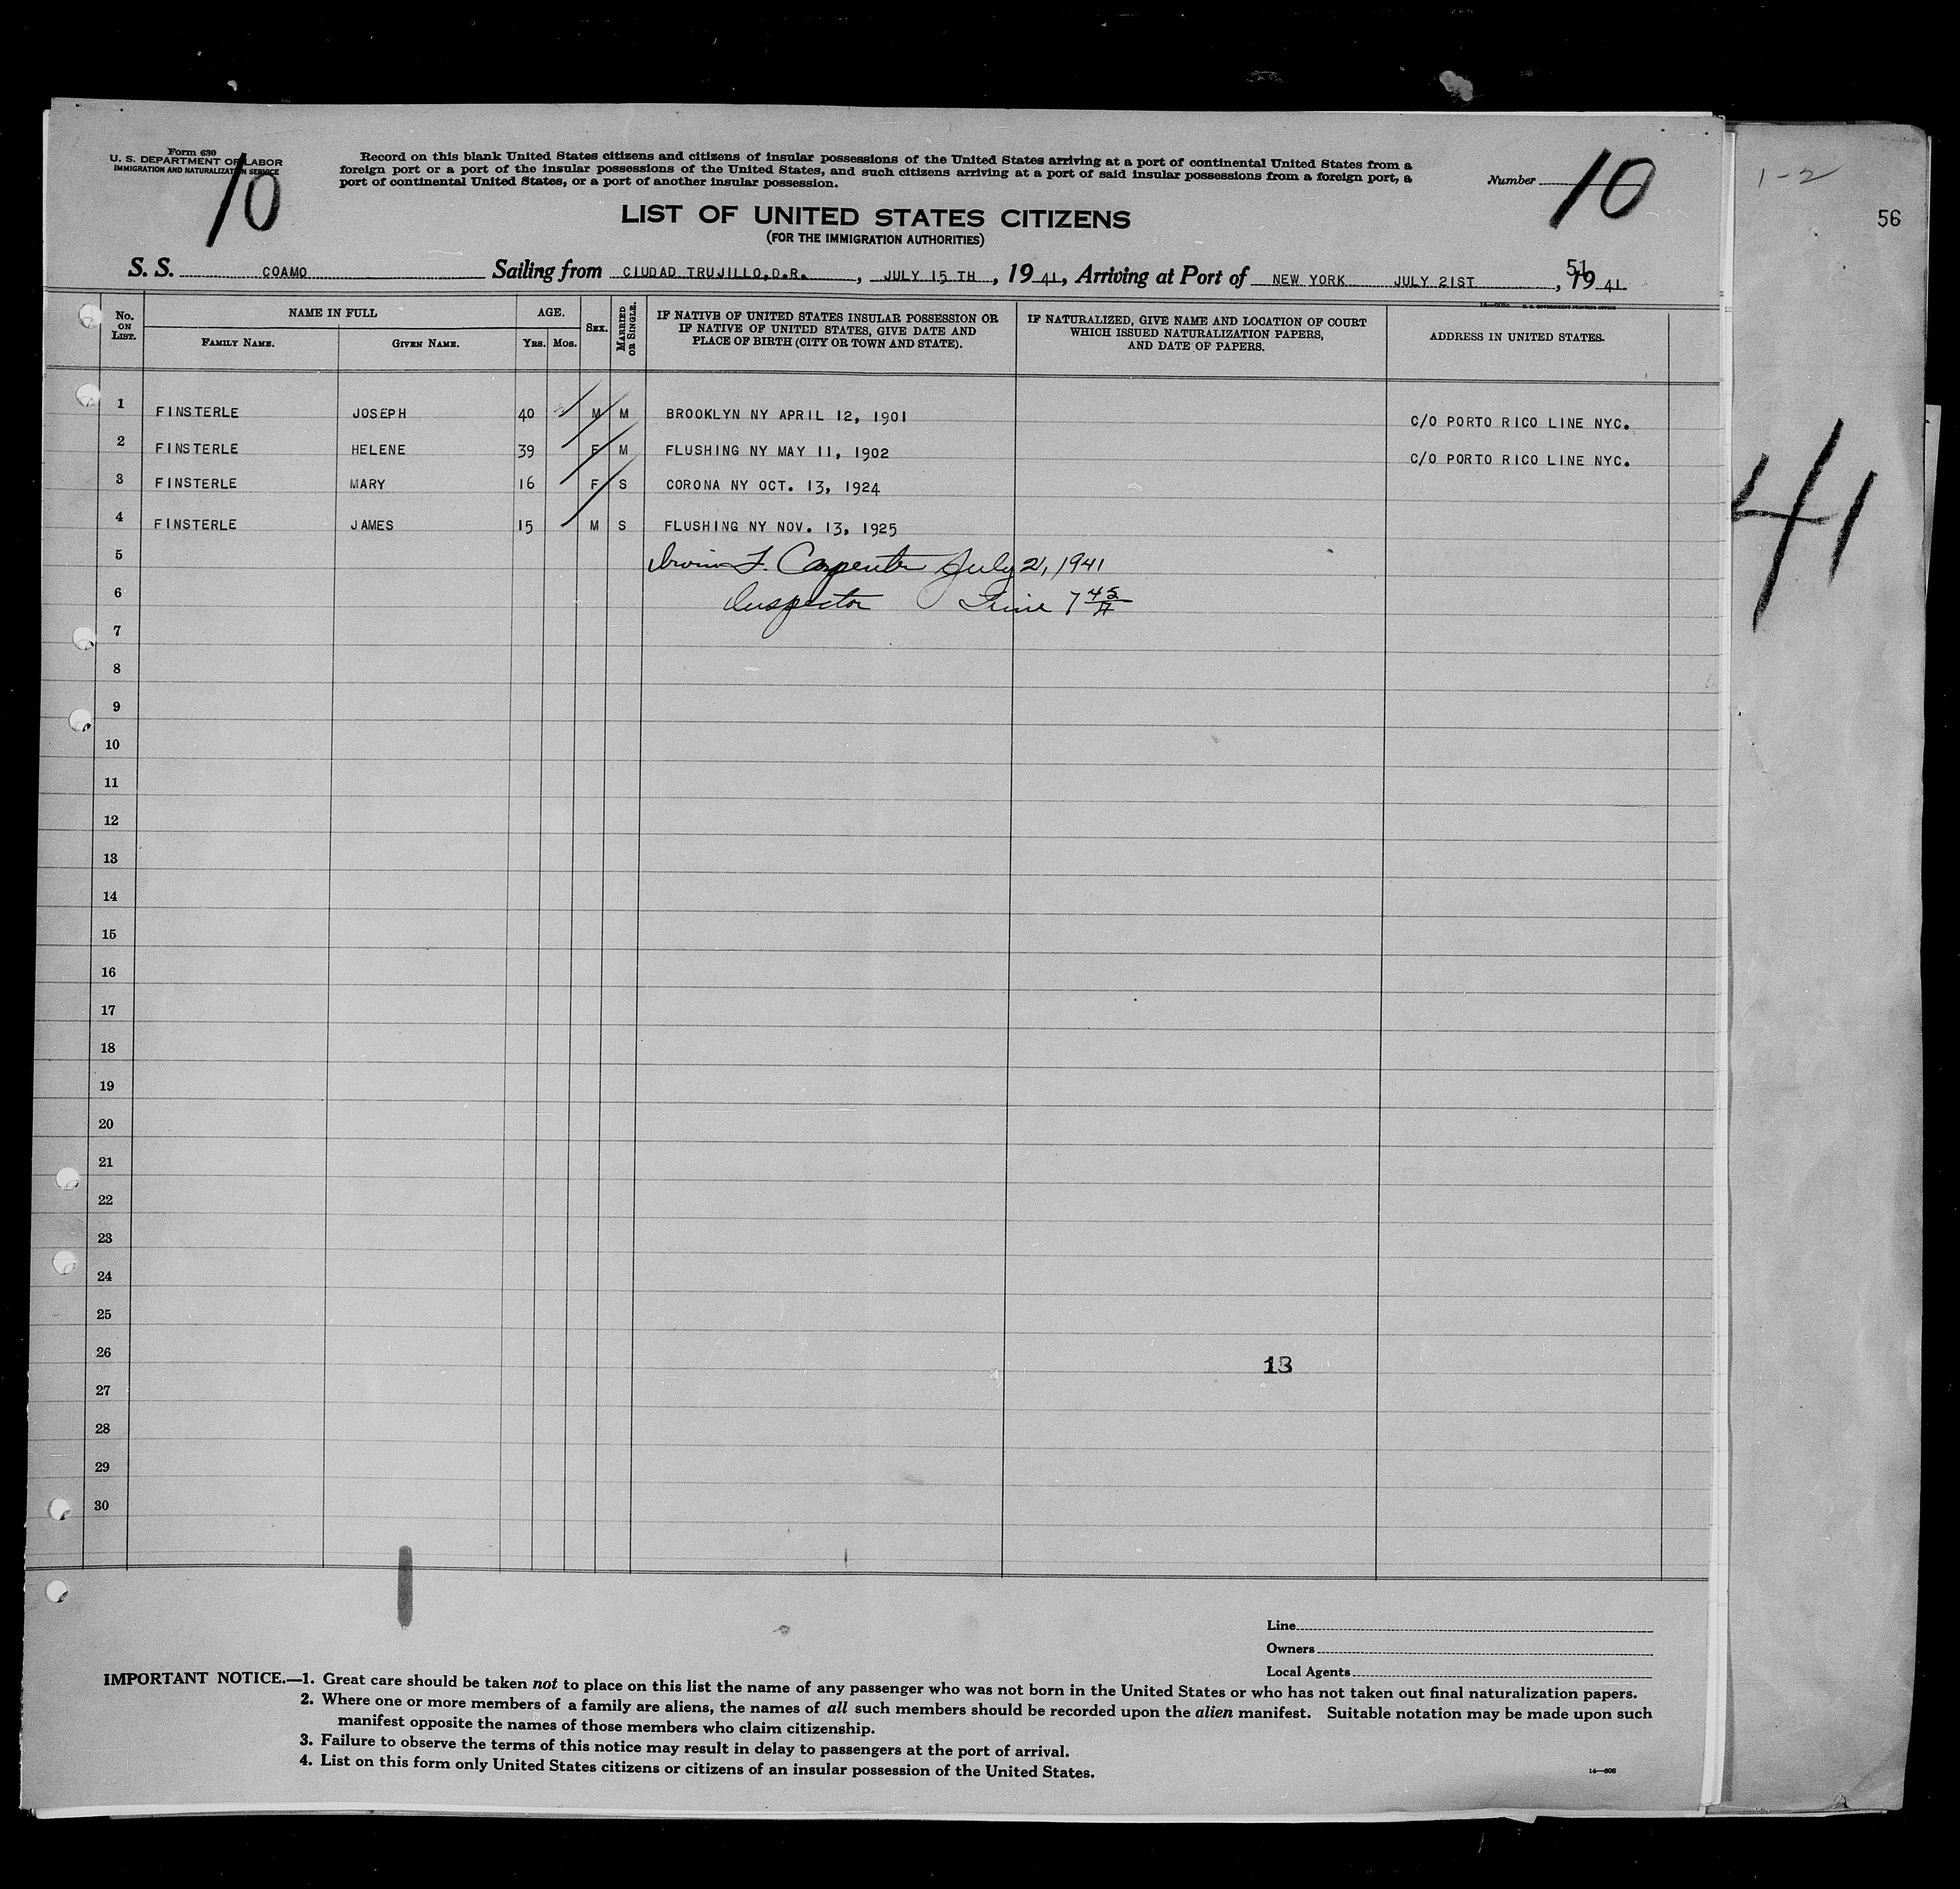 Form 630
U. S. DEPARTMENT OF LABOR
IMMIGRATION AND NATURALIZATION SERVICE
10
Record on this blank United States citizens and citizens of insular possessions of the United States arriving at a port of continental United States from a
foreign port or a port of the insular possessions of the United States, and such citizens arriving at a port of said insular possessions from a foreign port, a
port of continental United States, or a port of another insular possession.
Number 10
1-2
56
LIST OF UNITED STATES CITIZENS
(FOR THE IMMIGRATION AUTHORITIES)
51
S. S. COAMO Sailing from CIUDAD TRUJILLO,D.R. , JULY 15 TH , 19 41, Arriving at Port of NEW YORK JULY 21ST , 19 41
No. ON LIST. NAME IN FULL AGE. SEX. MARRIED OR SINGLE. IF NATIVE OF UNITED STATES INSULAR POSSESSION OR IF NATIVE OF UNITED STATES, GIVE DATE AND PLACE OF BIRTH (CITY OR TOWN AND STATE). IF NATURALIZED, GIVE NAME AND LOCATION OF COURT WHICH ISSUED NATURALIZATION PAPERS, AND DATE OF PAPERS. ADDRESS IN UNITED STATES.
FAMILY NAME. GIVEN NAME. YRS. MOS.
1 FINSTERLE JOSEPH 40 M M BROOKLYN NY APRIL 12, 1901 C/O PORTO RICO LINE NYC.
2 FINSTERLE HELENE 39 F M FLUSHING NY MAY 11, 1902 C/O PORTO RICO LINE NYC.
3 FINSTERLE MARY 16 F S CORONA NY OCT. 13, 1924
4 FINSTERLE JAMES 15 M S FLUSHING NY NOV. 13, 1925
41
5 Irwin F. Carpenter July 21, 1941
6 Inspector Time 7 45 A
7
8
9
10
11
12
13
14
15
16
17
18
19
20
21
22
23
24
25
26 13
27
28
29
30
Line
Owners
Local Agents
IMPORTANT NOTICE.—1. Great care should be taken not to place on this list the name of any passenger who was not born in the United States or who has not taken out final naturalization papers.
2. Where one or more members of a family are aliens, the names of all such members should be recorded upon the alien manifest. Suitable notation may be made upon such
manifest opposite the names of those members who claim citizenship.
3. Failure to observe the terms of this notice may result in delay to passengers at the port of arrival.
4. List on this form only United States citizens or citizens of an insular possession of the United States.